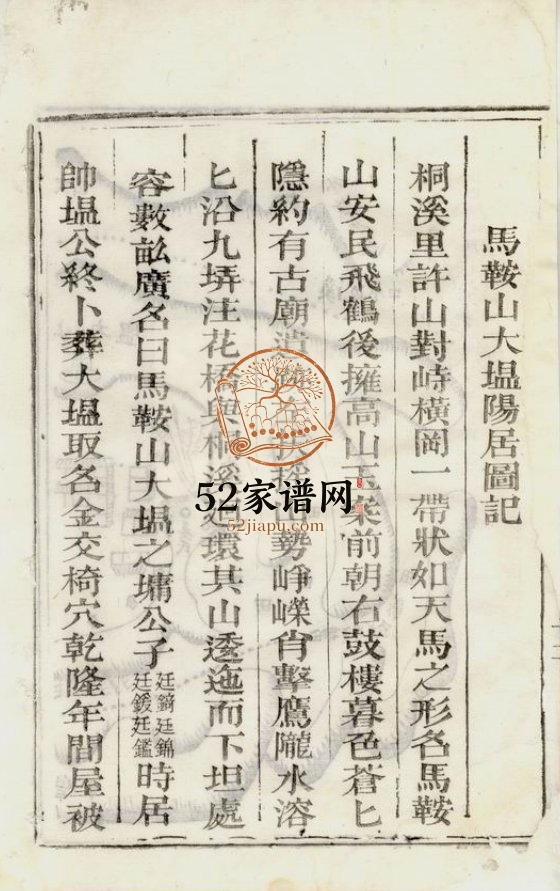 馬鞍山大塭陽居圖記
桐溪里許山對峙橫岡一帶狀如天馬之形名馬鞍
山安民飛鶴後擁高山玉案前朝右鼓樓暮色蒼匕
隱約有古廟遺 勢崢嶸肖擊鷹隴水溶
匕沿九塀注花橋與桐溪迴環其山逶迤而下坦處
容數畝廣名曰馬鞍山大塭之墉公子廷錡廷錦廷鍰廷鑑時居
帥塭公終卜葬大塭取名金交椅穴乾隆年間屋被
52家谱网
52jiapu.com